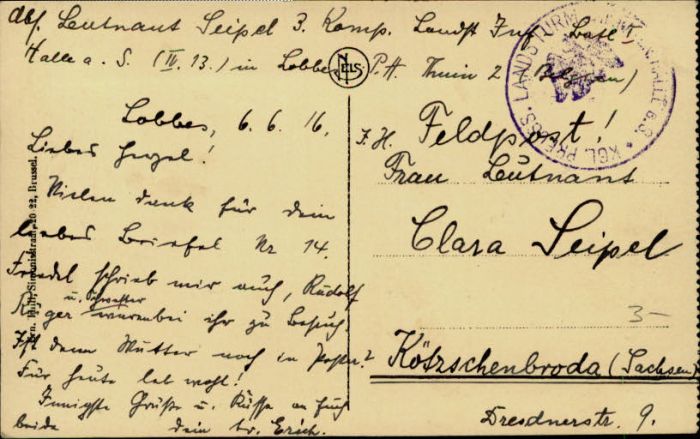 Abs. Leutnant Seipel 3. Komp. Landst. Inf. Batl.
Halle a. S. (IV. 13.) in Lobbes P.A. Thuin 2 Belgien)
NELS
KGL. PREUSS. LANDSTURM HALLE a.S.
Lobbes, 6. 6. 16.
Liebes Herzel!
Vielen Dank für dein
liebes Brieferl Nr 14.
Friedel schrieb mir auch, Rudolf
u. Schwester
Röger waren bei ihr zu Besuch
Ist denn Mutter noch in Posten?
Für heute leb wohl!
Innigste Grüße u. Küsse an Euch
beide dein tr. Erich.
F.H. Feldpost!
Frau Leutnant
Clara Seipel
3-
Kötzschenbroda (Sachsen)
Dresdnerstr. 9.
Ern. Thill, 20-22, Brussel.